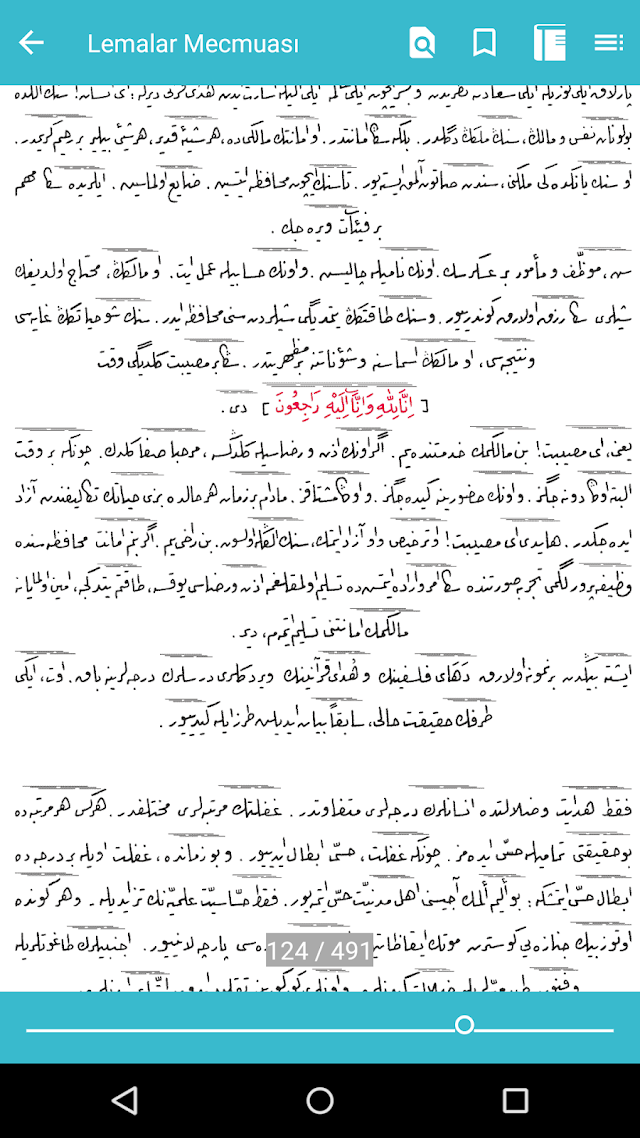 Lemalar Mecmuası
بولونان نفس و مالك، سنڭ ملكڭ دگلدر. بلكه سڭا امانتدر. او امانتك مالكی ده، هر شیئه قدیر، هر شیئی بیلیر بر رحیم كریمدر.
او سنڭ یانڭده كی ملكنی، سندن صاتون آلمق ایسته‌یور. تا سنڭ ایچون محافظه ایتسین. ضایع اولماسین. ایلریده سڭا مهم
بر فیئات ویره جك.
سن، موظّف و مأمور بر عسكرسڭ. اونڭ نامیله چالیش. و اونڭ حسابیله عمل ایت. او مالكڭ، محتاج اولدیغڭ
شیلری سڭا رزق اولارق كوندرییور. و سنڭ طاقتڭڭ یتمدیگی شیلردن سنی محافظه ایدر. سنڭ شو حیاتڭڭ غایه سی
و نتیجه سی، او مالكڭ اسماسنه و شؤناتنه بر مظهریتدر. سڭا بر مصیبت كلدیگی وقت
[ اِنَّا لِلّٰهِ وَاِنَّا اِلَيْهِ رَاجِعُونَ ] دی.
یعنی، ای مصیبت! بن مالكمڭ خدمتنده یم. اگر اونڭ اذن و رضاسیله كلدڭسه، مرحبا صفا كلدڭ. چونكه بر وقت
البته اوڭا دونه جگز. و اونڭ حضورینه كیده جگز. و اوڭا مشتاقز. مادام بر زمان هر حالده بزی حیاتڭ تكالیفندن آزاد
ایده جكدر. هایدی ای مصیبت! او ترخیص و او آزاد ایتمك، سنڭ الڭله اولسون. بن راضی یم. اگر بنم امانت محافظه سنده
وظیفه پرورلگمی تجربه صورتنده سڭا امر و اراده ایتمش ده تسلیم اولمقلغمه اذن و رضاسی یوقسه، طاقتم یتدكجه، امین اولمایانه
مالكمڭ امانتنی تسلیم ایتمم، دیر.
ایشته بیڭدن بر نمونه اولارق دهای فلسفینڭ و هُدای قرآنینڭ ویردكلری درسلرڭ درجه لرینه باق. اوت، ایكی
طرفڭ حقیقت حالی، سابقاً بیان ایدیلن طرز ایله كیدییور.
فقط هدایت و ضلالتده انسانلرڭ درجه لری متفاوتدر. غفلتڭ مرتبه لری مختلفدر. هركس هر مرتبه ده
بو حقیقتی تمامیله حسّ ایده مز. چونكه غفلت، حسّی ابطال ایدییور. و بو زمانده، غفلت اویله بر درجه ده
ابطال حسّ ایتمشكه؛ بو ألیم ألمڭ آجیسنی اهل مدنیّت حسّ ایتمه یور. فقط حسّاسیّت علمیّه نڭ تزایدیله. و هر كونده
اوتوز بیڭ جنازه یی كوسترن موتڭ ایقاظاتیله سی پارچه لانییور. اجنبیلرڭ طاغوتلریله
124 / 491